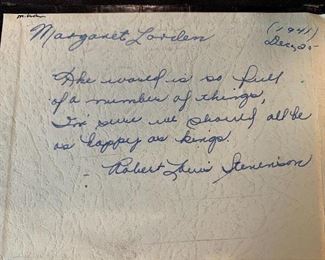 Margaret Lorden
(1941)
Dec, 25
The world is so full
of a number of things,
I'm sure we should all be
as happy as kings.
- Robert Louis Stevenson